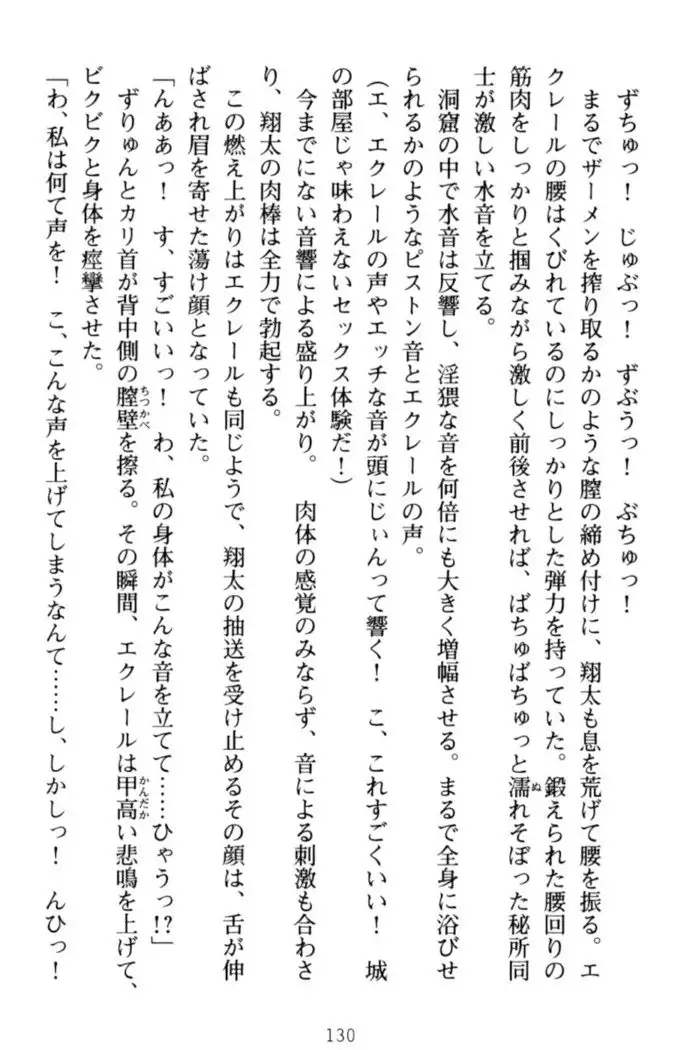 ずちゅっ！　じゅぶっ！　ずぶうっ！　ぶちゅっ！
まるでザーメンを搾り取るかのような膣の締め付けに、翔太も息を荒げて腰を振る。エ
クレールの腰はくびれているのにしっかりとした弾力を持っていた。鍛えられた腰回りの
筋肉をしっかりと掴みながら激しく前後させれば、ばちゅばちゅっと濡れそぼった秘所同
士が激しい水音を立てる。
洞窟の中で水音は反響し、淫猥な音を何倍にも大きく増幅させる。まるで全身に浴びせ
られるかのようなピストン音とエクレールの声。
（エ、エクレールの声やエッチな音が頭にじぃんって響く！　こ、これすごくいい！　城
の部屋じゃ味わえないセックス体験だ！）
今までにない音響による盛り上がり。　肉体の感覚のみならず、音による刺激も合わさ
り、翔太の肉棒は全力で勃起する。
この燃え上がりはエクレールも同じようで、翔太の抽送を受け止めるその顔は、舌が伸
ばされ眉を寄せた蕩け顔となっていた。
「んああっ！　す、すごいいっ！　わ、私の身体がこんな音を立てて……ひゃうっ!?」
ずりゅんとカリ首が背中側の膣壁を擦る。その瞬間、エクレールは甲高い悲鳴を上げて、
ビクビクと身体を痙攣させた。
「わ、私は何て声を！　こ、こんな声を上げてしまうなんて……し、しかしっ！　んひっ！
130